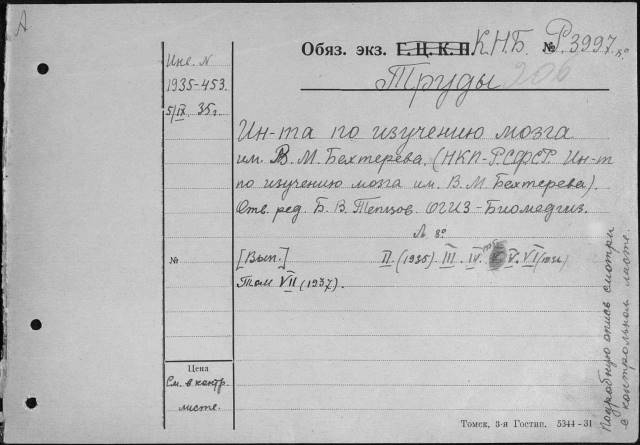 А
Обяз. экз. Г.Ц.К.П К.Н.Б. № Р.3997. 8°
Труды 206
Инв. N
1935-453.
5/IX 35 г.
Ин-та по изучению мозга
им. В. М. Бехтерева. (НКП-РСФСР. Ин-т
по изучению мозга им. В. М. Бехтерева).
Отв. ред. Б. В. ОГИЗ-Биомедгиз.
Л. 8°
№ [Вып.] II. (1935). III. IV. V. VI
Том VII (1937).
Цена
См. в контр.
листе.
Подробную опись смотри
в контрольном листе.
Томск, 3-я Гостип. 5344-31